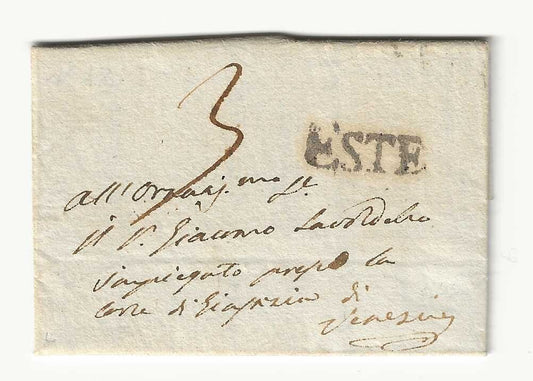 3
ESTE
All'
Il Sr. Giacomo
Impiegato presso la
Corte di Giustizia di
Venezia